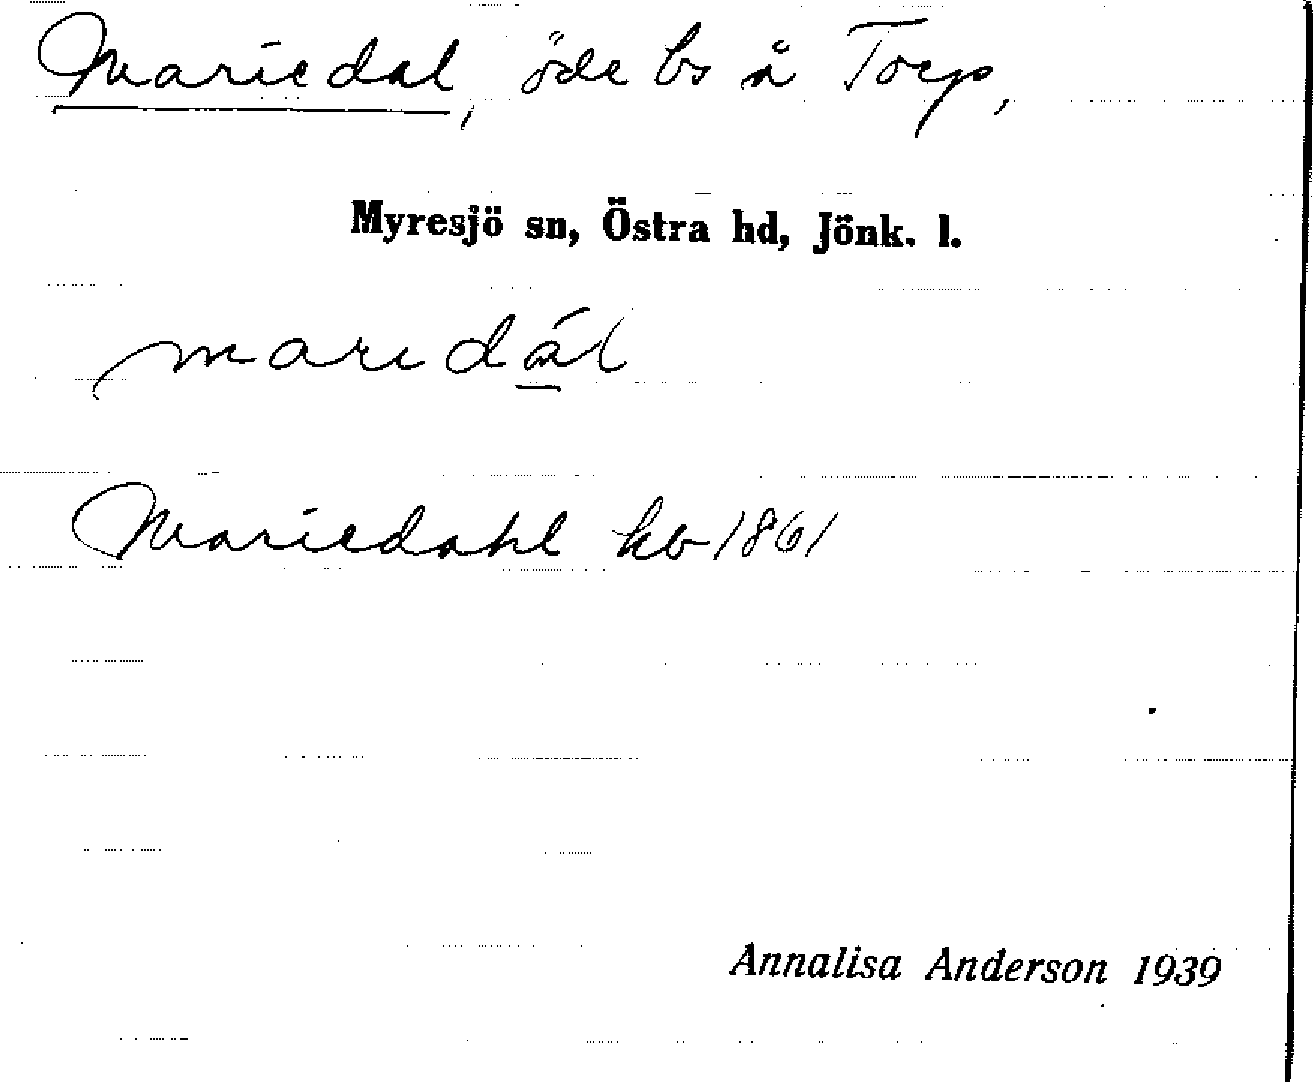 Mariedal, öde bs å Torp,
Myresjö sn, Östra hd, Jönk. l.
maredál
Mariedahl hb 1861
Annalisa Anderson 1939